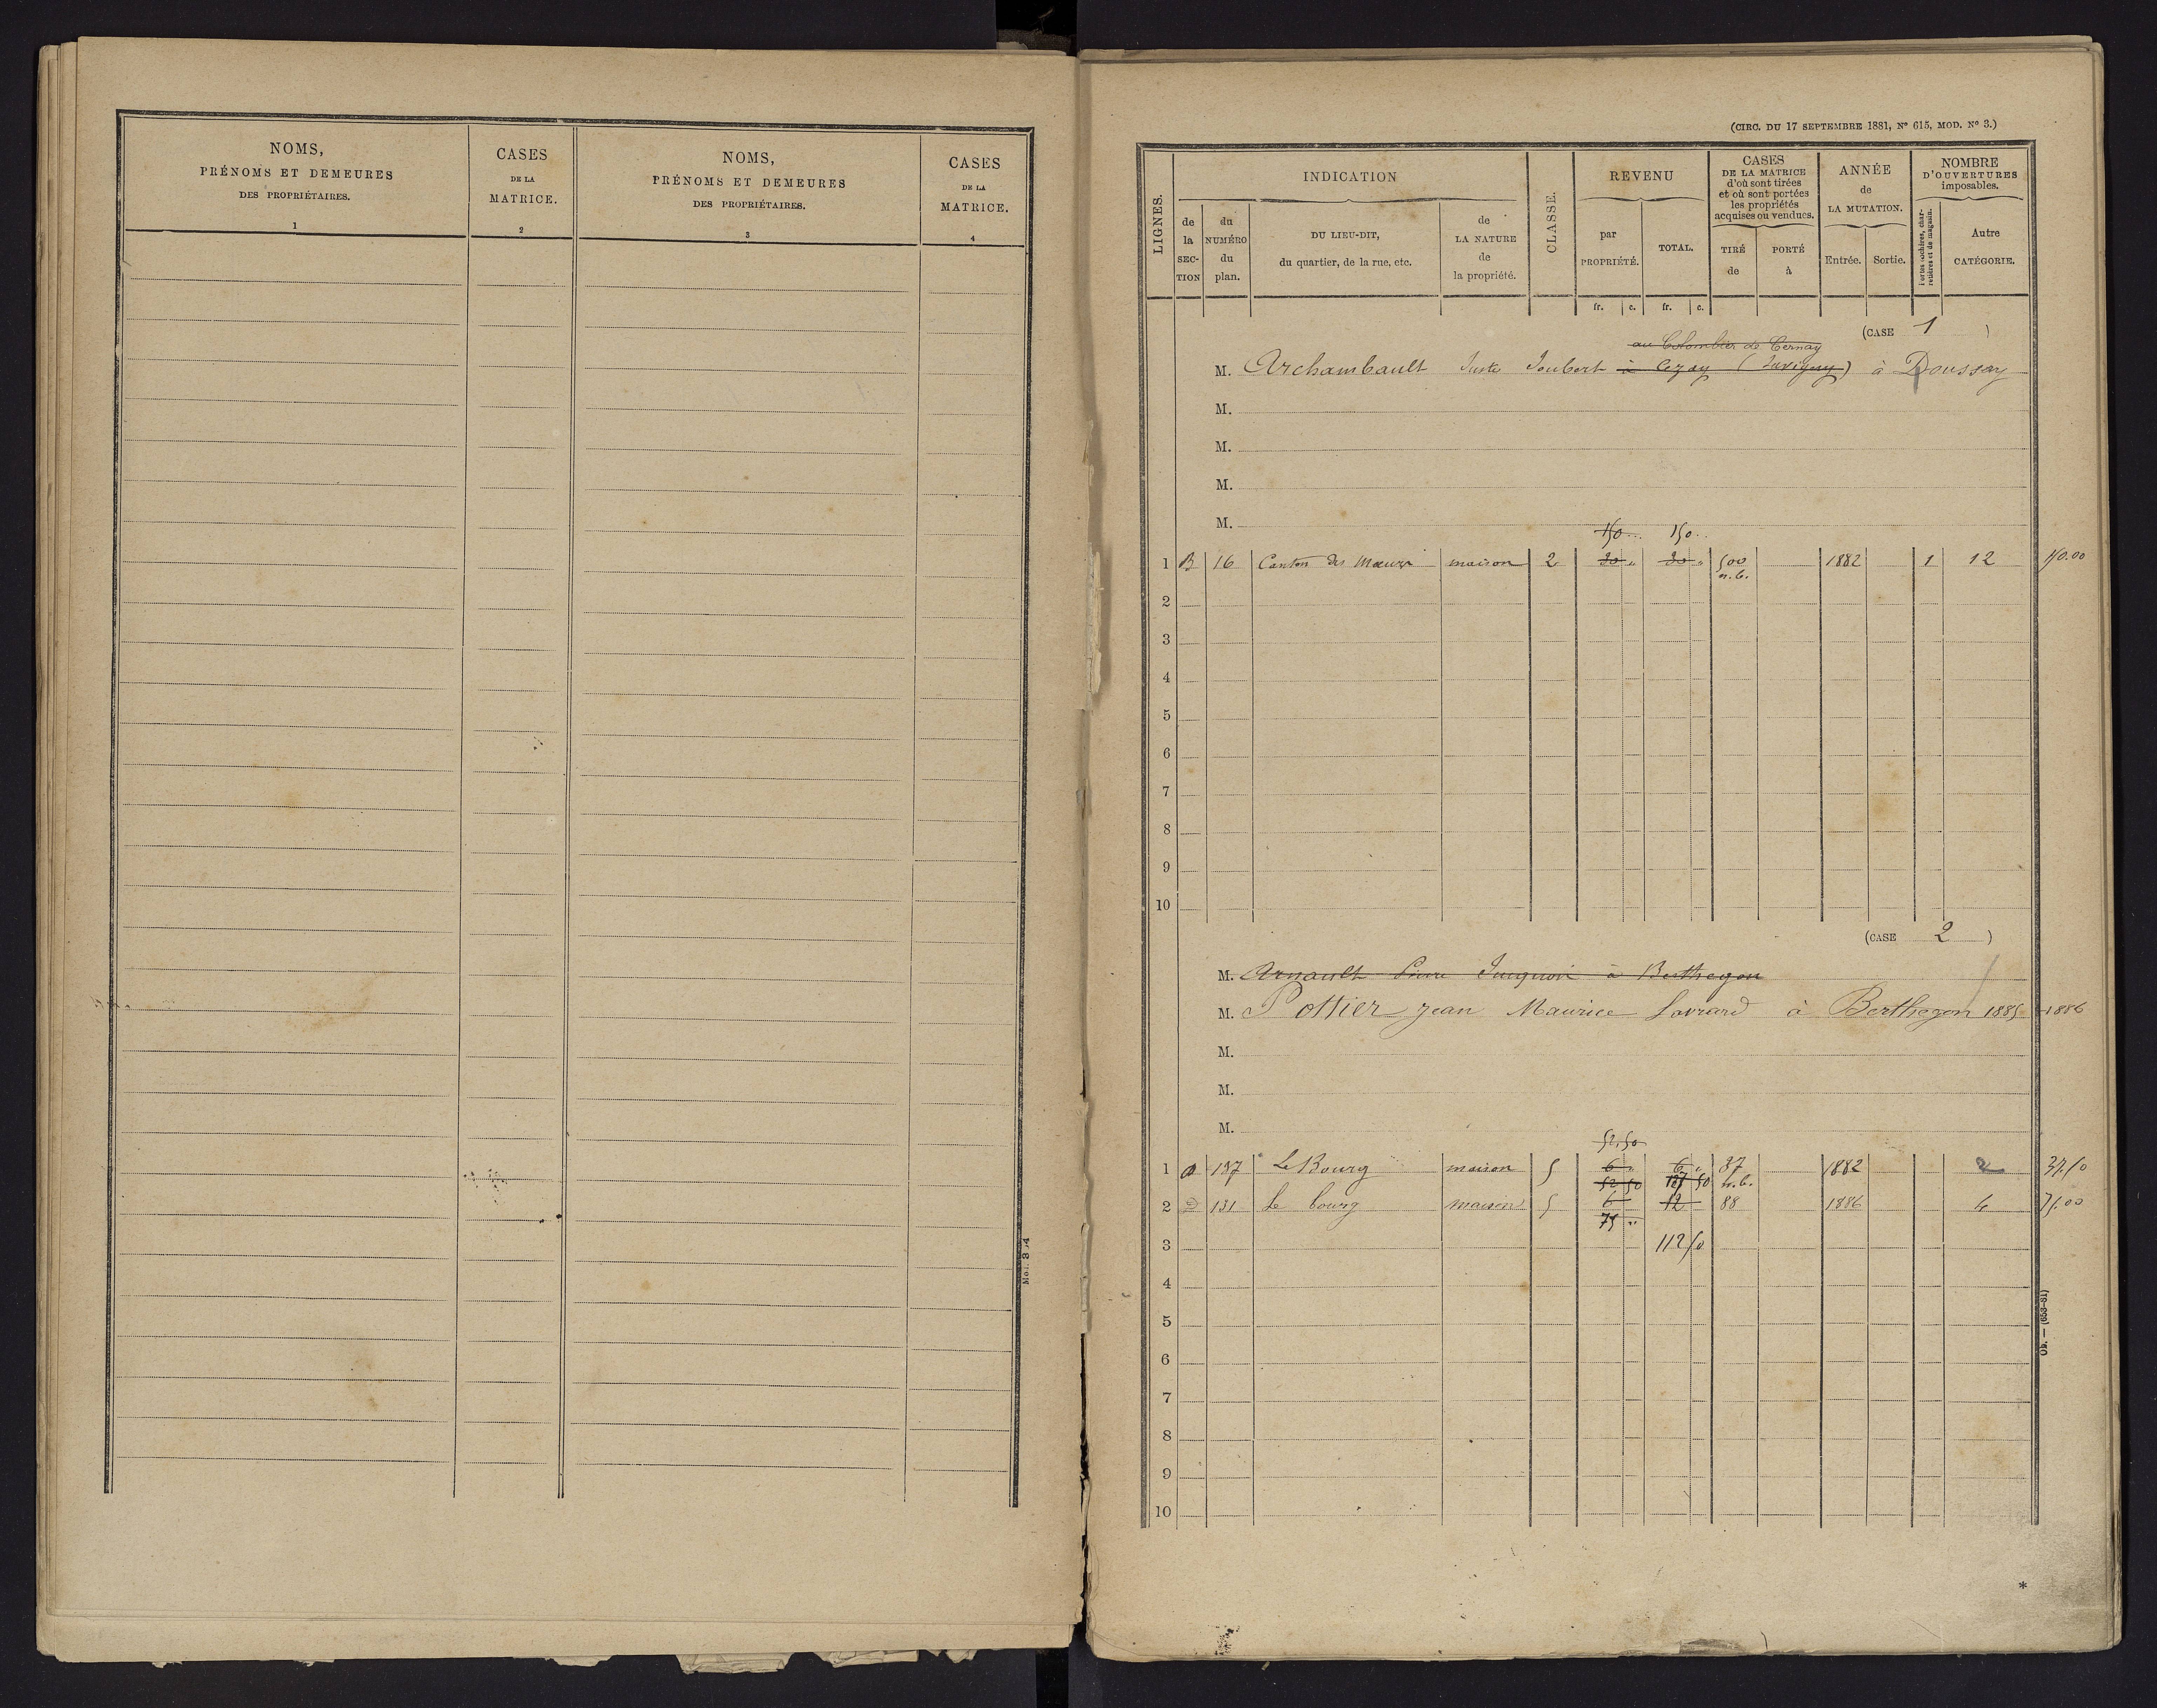 NOMS,
PRÉNOMS ET DEMEURES
DES PROPRIÉTAIRES.
1
CASES
DE LA
MATRICE.
2
NOMS,
PRÉNOMS ET DEMEURES
DES PROPRIÉTAIRES.
3
CASES
DE LA
MATRICE.
4
(CIRC. DU 17 SEPTEMBRE 1881, N° 615, MOD. N° 3.)
LIGNES.
INDICATION
de la SECTION
du NUMÉRO du plan.
DU LIEU-DIT,
du quartier, de la rue, etc.
de LA NATURE de la propriété.
CLASSE.
REVENU
par PROPRIÉTÉ.
TOTAL.
CASES
DE LA MATRICE
d'où sont tirées
et où sont portées
les propriétés
acquises ou vendues.
TIRÉ de
PORTÉ à
ANNÉE
de
LA MUTATION.
Entrée.
Sortie.
NOMBRE
D'OUVERTURES
imposables.
Portes cochères, charretières et de magasin.
Autre
CATÉGORIE.
fr. c. fr. c.
(CASE 1 )
au Colombier de Cernay
M. Archambault Juste Joubert à (Savigny) à Doussay
M.
M.
M.
M.
150 150
1 B 16 Canton des maison 2 20 " 20 " 500 1882 1 12 150.00
n.b.
2
3
4
5
6
7
8
9
10
(CASE 2 )
M. Arnault Pierre à Berthegon
M. Pottier Jean Maurice Savrard à Berthegon 1885 1886
M.
M.
M.
52,50
1 D 137 Le Bourg maison 5 6 " 6 " 37 1882 2 37,50
52 50 127 50 n.b.
2 D 131 Le bourg maison 5 6 12 88 1886 4 75,00
75 "
3 112 50
4
5
6
7
8
9
10
Mod. 3
Ob. — (653-81)
*